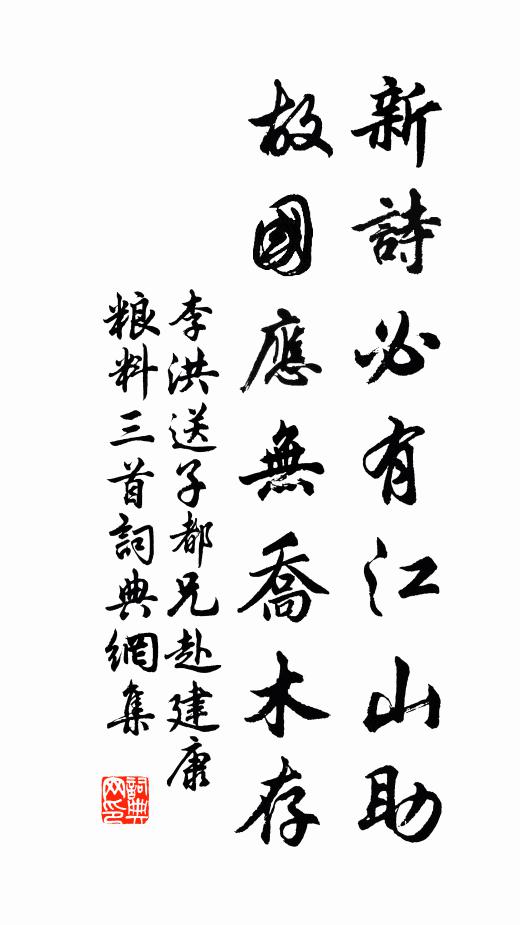 新詩必有江山助
故國應無喬木存
李洪送子都兄赴建康
粮料三首詞典網集
詞典網印